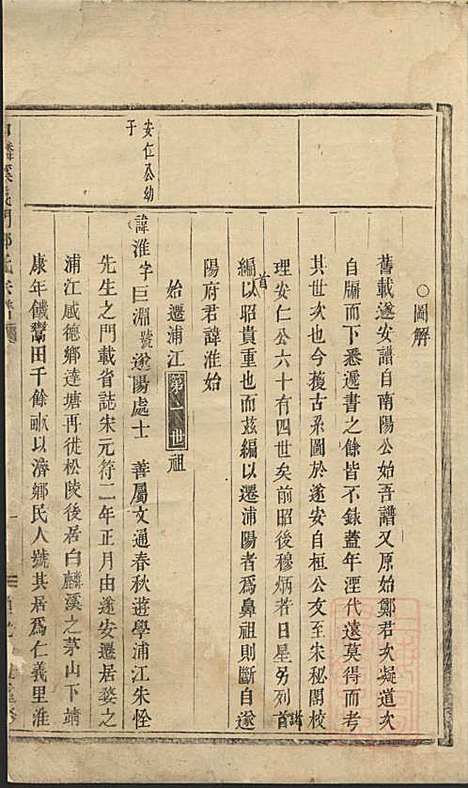 ○圖解
舊載遂安譜自南陽公始吾譜又原始鄭君次凝道次
自牖而下悉遞書之餘皆不錄蓋年湮代遠莫得而考
其世次也今獲古系圖於遂安自桓公友至朱秘閣校
理安仁公六十有四世矣前昭後穆炳若日星另列諸首
編以昭貴重也而茲編以遷浦陽者為鼻祖則斷自遂
陽府君諱淮始
始遷浦江第一世祖
安仁公幼子
諱淮字巨淵號遂陽處士 善屬文通春秋遊學浦江朱恮
先生之門載省誌宋元符二年正月由遂安遷居婺之
浦江感德鄉達塘再徙松陵後居白麟溪之茅山下靖
康年饑鬻田千餘畝以濟鄉民人號其居為仁義里淮